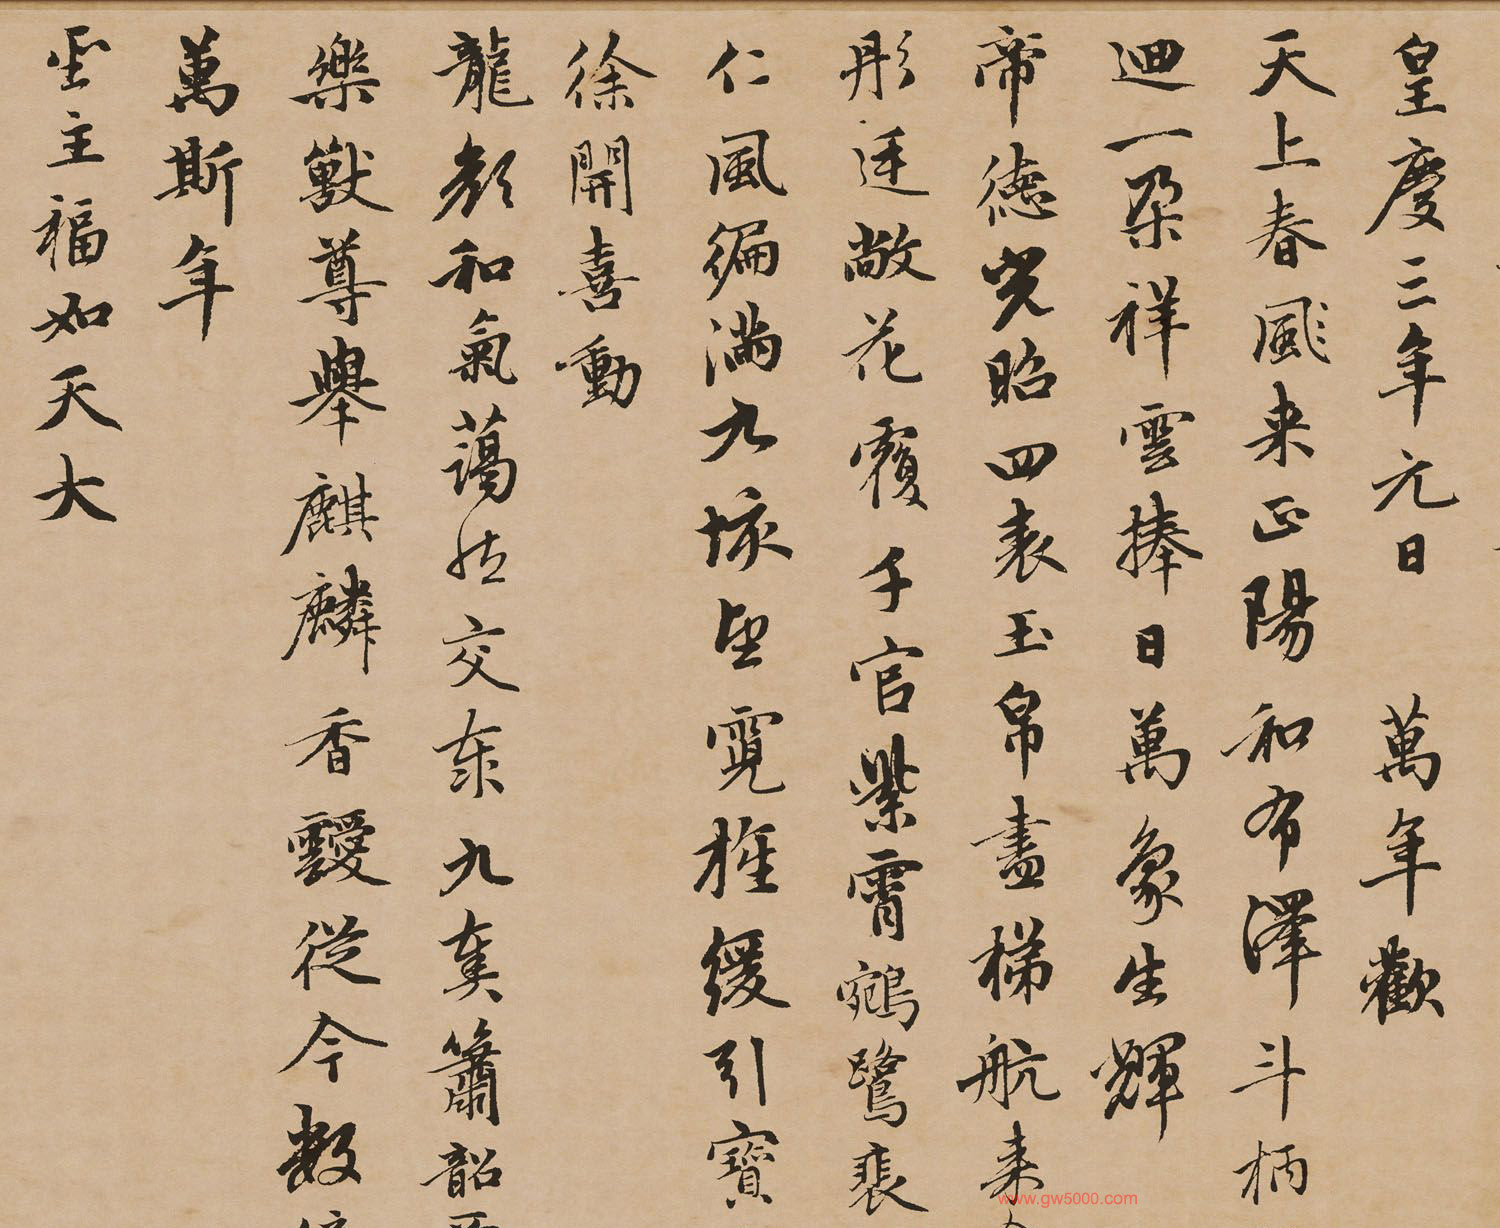 皇慶三年元日 萬年歡
天上春風来正陽和布澤斗柄
迴一朶祥雲捧日萬象生輝
帝德光昭四表玉帛盡梯航来
彤廷敞花覆千官紫霄鵷鷺裴
仁風徧滿九垓望霓旌緩引寶
徐開喜動
龍顔和氣藹然交泰九奏簫韶
樂獸尊舉麒麟香靉從今數
萬斯年
聖主福如天大
www.gw5000.com